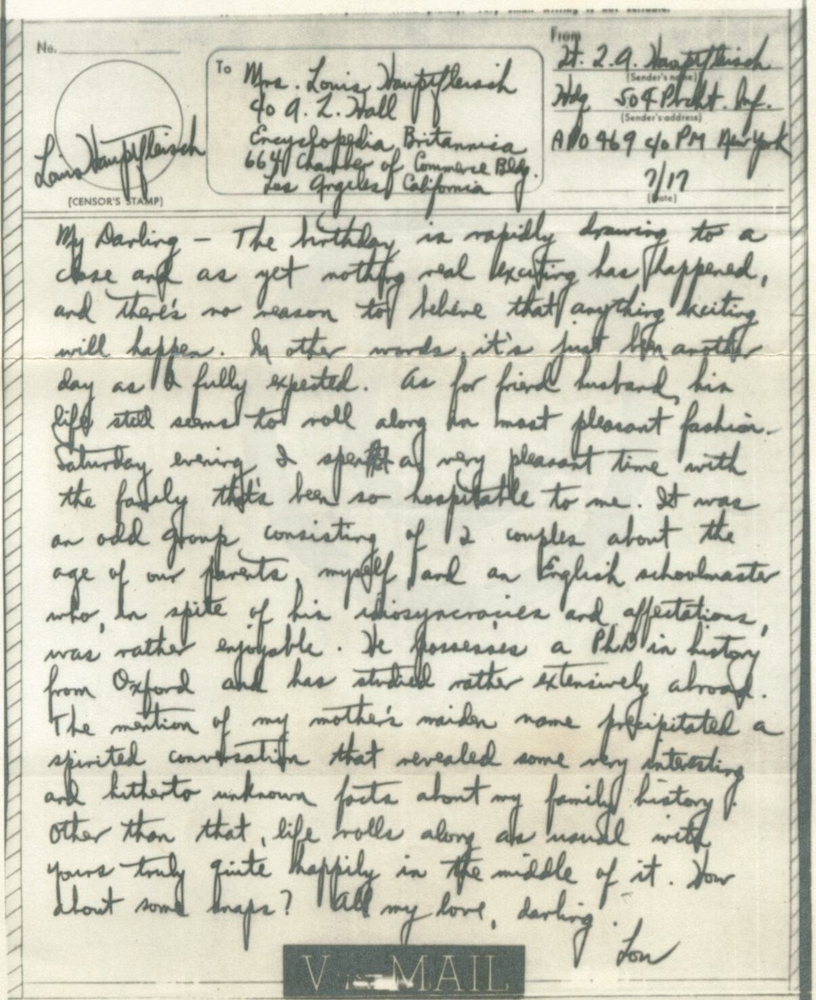 No.
Louis Hauptfleisch
[CENSOR'S STAMP]
To Mrs. Louis Hauptfleisch
c/o A. L. Hall
Encyclopedia Britannica
664 Chamber of Commerce Bldg.
Los Angeles California
From
Lt. L.A. Hauptfleisch
(Sender's name)
Hdq 504 Prcht. Inf.
(Sender's address)
APO 469 c/o PM New York
7/17
(Date)
My Darling – The birthday is rapidly drawing to a
close and as yet nothing real exciting has happened,
and there's no reason to believe that anything exciting
will happen. In other words, it's just been another
day as I fully expected. As for friend husband, his
life still seems to roll along in most pleasant fashion.
Saturday evening I spent a very pleasant time with
the family that's been so hospitable to me. It was
an odd group consisting of 2 couples about the
age of our parents, myself and an English schoolmaster
who, in spite of his idiosyncracies and affectations,
was rather enjoyable. He possesses a PhD in history
from Oxford and has studied rather extensively abroad.
The mention of my mother's maiden name precipitated a
spirited conversation that revealed some very interesting
and hitherto unknown facts about my family history.
Other than that, life rolls along as usual with
yours truly quite happily in the middle of it. How
about some snaps? All my love, darling.
Lou
V-MAIL